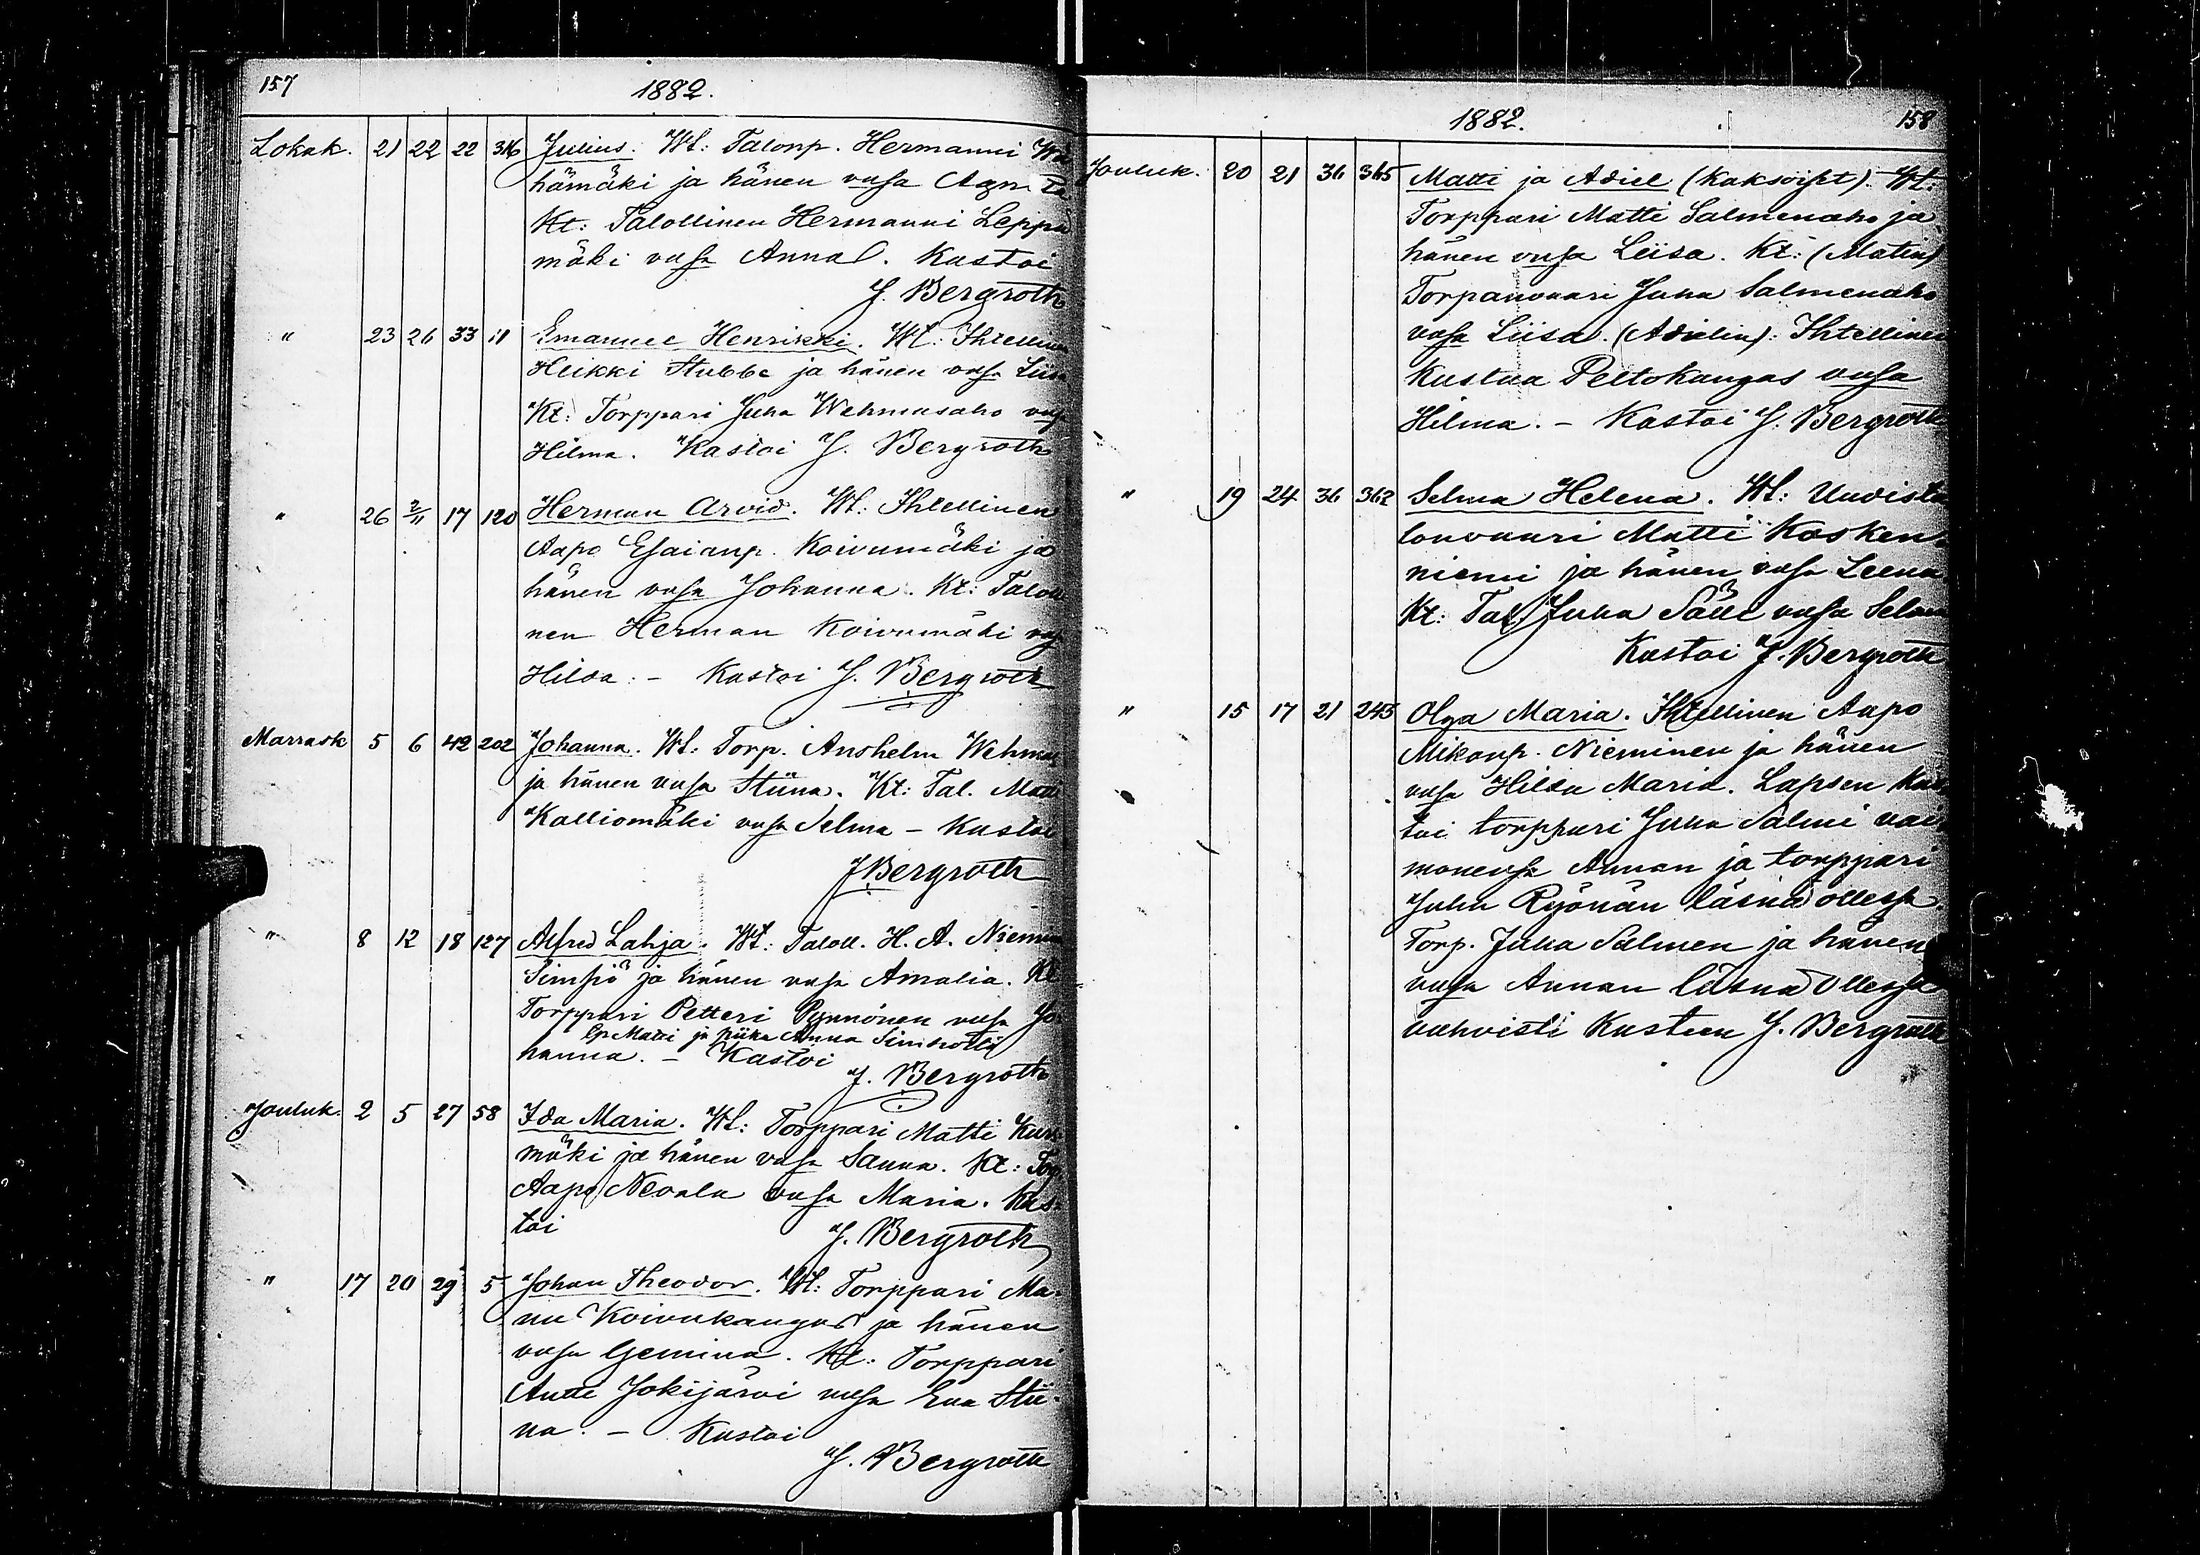 157
1882.
Lokak. 21 22 22 316 Julius. Wt: Talonp. Hermanni
hämäki ja hänen vsa
Kt: Talollinen Hermanni Leppä
mäki vsa Anna. Kastoi
J. Bergroth
" 23 26 33 11 Emanuel Henrikki. Wt. Ihtellinen
Heikki Stubbe ja hänen vsa Liisa
Kt: Torppari Juha Wehmasaho vsa
Hilma. Kastoi J. Bergroth
" 26 2/11 17 120 Herman Arvid. Wt: Ihtellinen
Aapo Esaianp. Koivumäki ja
hänen vsa Johanna. Kt: Taloll
nen Herman Koivumäki vsa
Hilda. – Kastoi J. Bergroth
Marrask 5 6 42 202 Johanna. Wt: Torp. Anshelm Wehmas
ja hänen vsa Stiina. Kt: Tal. Matti
Kalliomäki vsa Selma – Kastoi
J Bergroth
" 8 12 18 127 Alfred Lahja. Wt: Taloll. H. A. Niemi
Simsiö ja hänen vsa Amalia. Kt
Torppari Petteri Pynnönen vsa Jo-
Matti ja piika Anna
hanna. – Kastoi
J. Bergroth
Jouluk. 2 5 27 58 Ida Maria. Wt: Torppari Matti
mäki ja hänen vsa Sanna. Kt: Torp
Aapo Nevala vsa Maria. Kas-
toi J. Bergroth
" 17 20 29 5 Johan Theodor. Wt: Torppari Ma-
nu Koivukangas ja hänen
vsa Gemina. Kt: Torppari
Antti Jokijärvi vsa Eva Stii-
na. – Kastoi
J. Bergroth
1882. 158
Jouluk. 20 21 36 365 Matti ja Adiel (Kaksoiset). Wt.
Torppari Matti Salmenaho ja
hänen vsa Liisa. Kt: (Matin)
Torpanvaari Juha Salmenaho
vsa Liisa. (Adielin): Ihtellinen
Kustaa Peltokangas vsa
Hilma. – Kastoi J. Bergroth
" 19 24 36 362 Selma Helena. Wt: Uudista
lonvaari Matti Kosken-
niemi ja hänen vsa Leena
Kt: Tal. Juha vsa Selma
Kastoi J. Bergroth
" 15 17 21 245 Olga Maria. Ihtellinen Aapo
Mikonp. Nieminen ja hänen
vsa Hilda Maria. Lapsen kas
toi torppari Juha Salmi vai
monensa Annan ja torppari
Juha Ryönän läsnä ollessa.
Torp. Juha Salmen ja hänen
vsa Annan läsnä ollessa
vahvisti Kasteen J. Bergroth